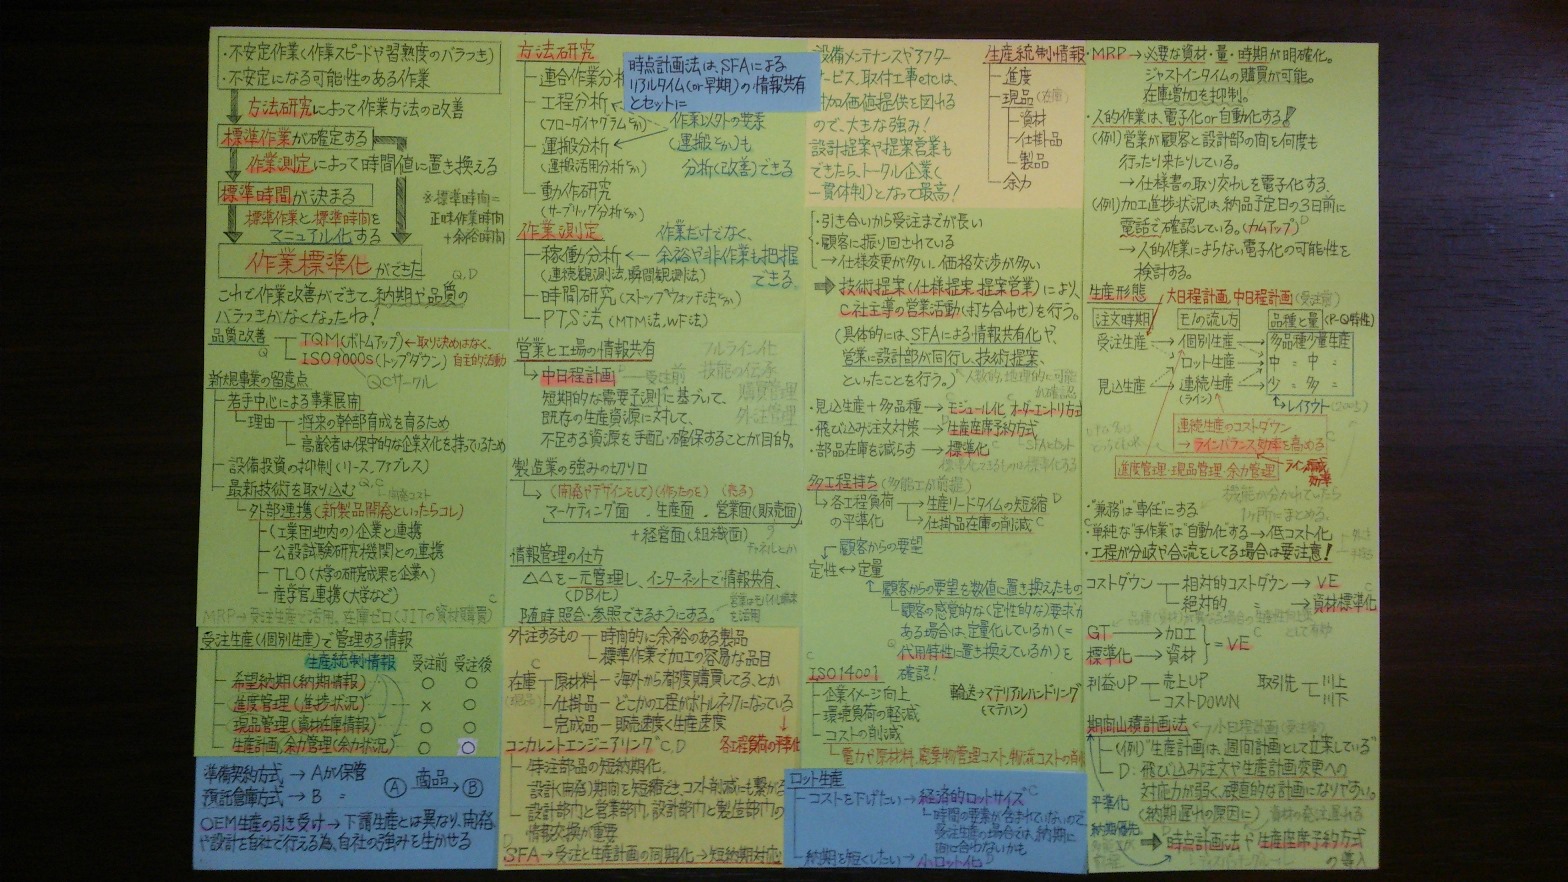 ・不安定作業(作業スピードや習熟度のバラつき)
・不安定になる可能性のある作業
方法研究によって作業方法の改善
標準作業が確定する
作業測定によって時間値に置き換える
標準時間が決まる
※標準時間=
正味作業時間
+余裕時間
標準作業と標準時間を
マニュアル化する
作業標準化ができた
Q,D
これで作業改善ができて納期や品質の
バラつきがなくなったね!
品質改善
Q
TQM(ボトムアップ)←取り決めはなく、
自主的活動
ISO9000s(トップダウン)
QCサークル
新規事業の留意点
若手中心による事業展開
理由 将来の幹部育成を育るため
高齢者は保守的な企業文化を持ているため
設備投資の抑制(リース、ファブレス)
最新技術を取り込む Q,C
外部連携(新製品開発といったらコレ)
(工業団地内の)企業と連携
公設試験研究機関との連携
TLO(大学の研究成果を企業へ)
産学官連携(大学など)
MRP→受注生産で活用。在庫ゼロ(JITの資材購買)
受注生産(個別生産)で管理する情報
生産統制情報
受注前 受注後
希望納期(納期情報) ○ ○
進度管理(進捗状況) × ○
現品管理(資材在庫情報) ○ ○
生産計画、余力管理(余力状況) ○ ○
準備契約方式→Aが保管
預託倉庫方式→B 〃
A 商品→ B
OEM生産の引き受け→下請生産とは異なり、開発
や設計を自社で行える為、自社の強みを生かせる
方法研究
連合作業分析
工程分析
(フローダイヤグラムなど)
運搬分析
(運搬活用分析など)
動作研究
(サーブリッグ分析など)
時点計画法は、SFAによる
リアルタイム(or早期)の情報共有
とセットに
作業以外の要素
(運搬とか)も
分析(改善)できる
作業測定
稼働分析
(連続観測法、瞬間観測法)
時間研究(ストップウォッチ法など)
PTS法(MTM法、WF法)
作業だけでなく、
余裕や非作業も把握
できる
営業と工場の情報共有
中日程計画 受注前
短期的な需要予測に基づいて、
既存の生産資源に対して、
不足する資源を手配・確保することが目的。
フルライン化
技能の伝承
購買管理
外注管理
製造業の強みの切り口
(開発やデザインをして)(作ったのを)(売る)
マーケティング面、生産面、営業面(販売面)
+経営面(組織面)
チャネルとか
情報管理の仕方
△△を一元管理し、インターネットで情報共有、
(DB化)
随時照会・参照できるようにする。
営業はモバイル端末
を活用
外注するもの 時間的に余裕のある製品
標準作業で加工の容易な品目
在庫 原材料─海外から都度購買してる、とか
(現品) 仕掛品─どこかの工程がボトルネックになっている
完成品─販売速度<生産速度
各工程負荷の平準化
コンカレントエンジニアリング C,D
特注部品の短納期化。
設計(開発)期間を短縮でき、コスト削減にも繋がる
設計部門と営業部門、設計部門と製造部門の
情報交換が重要
SFA→受注と生産計画の同期化→短納期対応
設備メンテナンスやアフター
サービス、取付工事etcは、
付加価値提供を図れる
ので、大きな強み!
設計提案や提案営業も
できたら、トータル企業(
一貫体制)となって最高!
生産統制情報
進度
現品(在庫)
資材
仕掛品
製品
余力
・引き合いから受注までが長い
・顧客に振り回されている
→仕様変更が多い、価格交渉が多い
技術提案(仕様提案、提案営業)により、
C社主導の営業活動(打ち合せ)を行う。
(具体的には、SFAによる情報共有化や、
営業に設計部が同行し、技術提案、
といったことを行う。)
人数的、地理的に可能
か確認も
・見込生産+多品種→モジュール化、オーダーエントリ方式
・飛び込み注文対策→生産座席予約方式
・部品在庫を減らす→標準化
SFAとセット
標準化できるものは標準化する
多工程持ち(多能工が前提)
各工程負荷
の平準化
生産リードタイムの短縮 D
仕掛品在庫の削減 C
顧客からの要望
定性↔定量
顧客からの要望を数値に置き換えたもの
顧客の感覚的な(定性的な)要求が
ある場合は、定量化しているか(=
代用特性に置き換えているか)を
確認!
ISO14001
企業イメージ向上
環境負荷の軽減
コストの削減
電力や原材料、廃棄物管理コスト、物流コストの削減
輸送→マテリアルハンドリング
(マテハン)
ロット生産
コストを下げたい→経済的ロットサイズ C
時間の要素が含まれていないので
受注生産の場合では、納期に
間に合わないかも
納期を短くしたい→小ロット化 D
・MRP→必要な資材・量・時期が明確化。
ジャストインタイムの購買が可能。
在庫増加を抑制。
・人的作業は、電子化or自動化する!
(例)営業が顧客と設計部の間を何度も
行ったり来たりしている。
→仕様書の取り交わしを電子化する、
(例)加工進捗状況は、納品予定日の3日前に
電話で確認している。(カムアップ) D
→人的作業によらない電子化の可能性を
検討する。
生産形態 大日程計画、中日程計画(受注前)
注文時期 モノの流し方 品種と量(P-Q特性)
受注生産 個別生産 多品種少量生産
ロット生産 中 〃 中 〃
見込生産 連続生産 少 〃 多 〃
(ライン)
レイアウト
連続生産のコストダウン
→ラインバランス効率を高める
進度管理・現品管理・余力管理
機能が分かれていたら
1ヶ所にまとめる。
・"兼務"は"専任"にする
・単純な"手作業"は"自動化"する→低コスト化
・工程が分岐や合流をしてる場合は要注意!
コストダウン 相対的コストダウン→VE
絶対的 〃 →資材標準化
GT→加工
標準化→資材
=VE
利益UP 売上UP
コストDOWN
取引先 川上
川下
期間山積計画法 小日程計画(受注後)
(例)"生産計画は、週間計画として立案している"
D:飛び込み注文や生産計画変更への
対応力が弱く、硬直的な計画になりやすい。
(納期遅れの原因に)
資材の発注遅れる
平準化
納期優先
時点計画法や生産座席予約方式
の導入